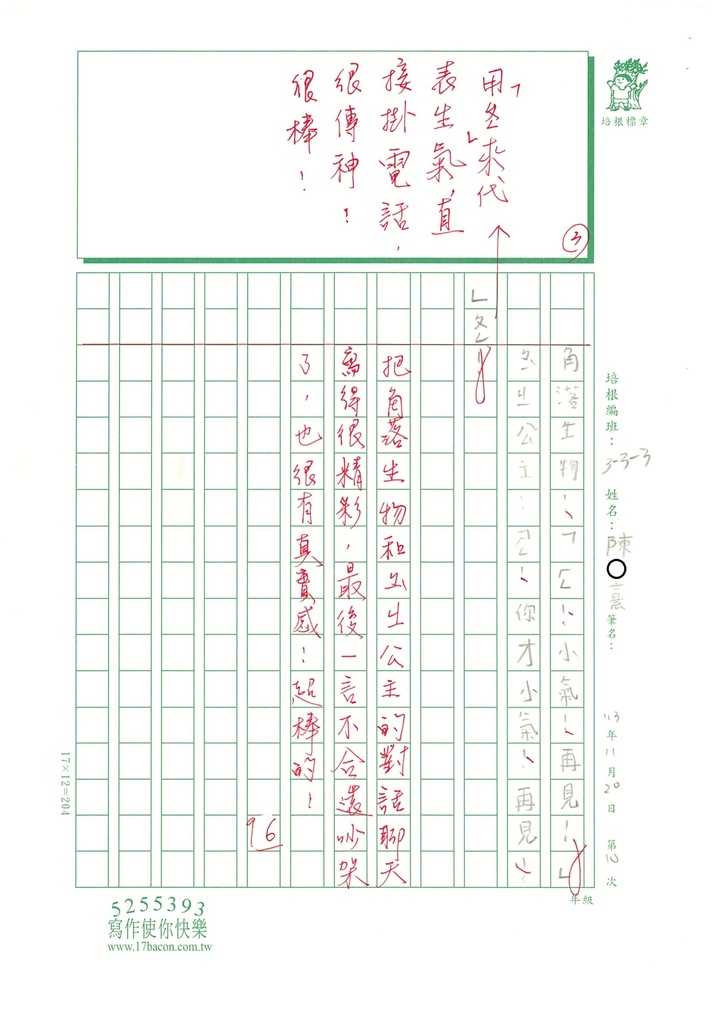 用「ㄆ」來代
表生氣,直
接掛電話,
很傳神!
很棒!
3
培根標章
培根編班:3-3-3 姓名:陳○熹 筆名: 113年11月20日 第10次
年級
角落生物:「ㄛ!小氣!再見!」
公主:「ㄛ!你才小氣!再見!
把角落生物和公主的對話聊天
寫得很精彩,最後一言不合還吵架
了,也很有真實感!超棒的!
96
17×12=204
5255393
寫作使你快樂
www.17bacon.com.tw